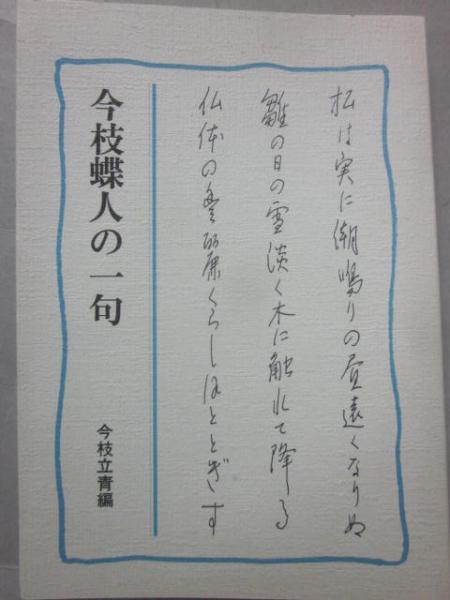 松は実に潮鳴りの昼遠くなりぬ
雛の日の雪淡く木に触れて降る
仏体の豊麗くらしほととぎす
今枝蝶人の一句
今枝立青編